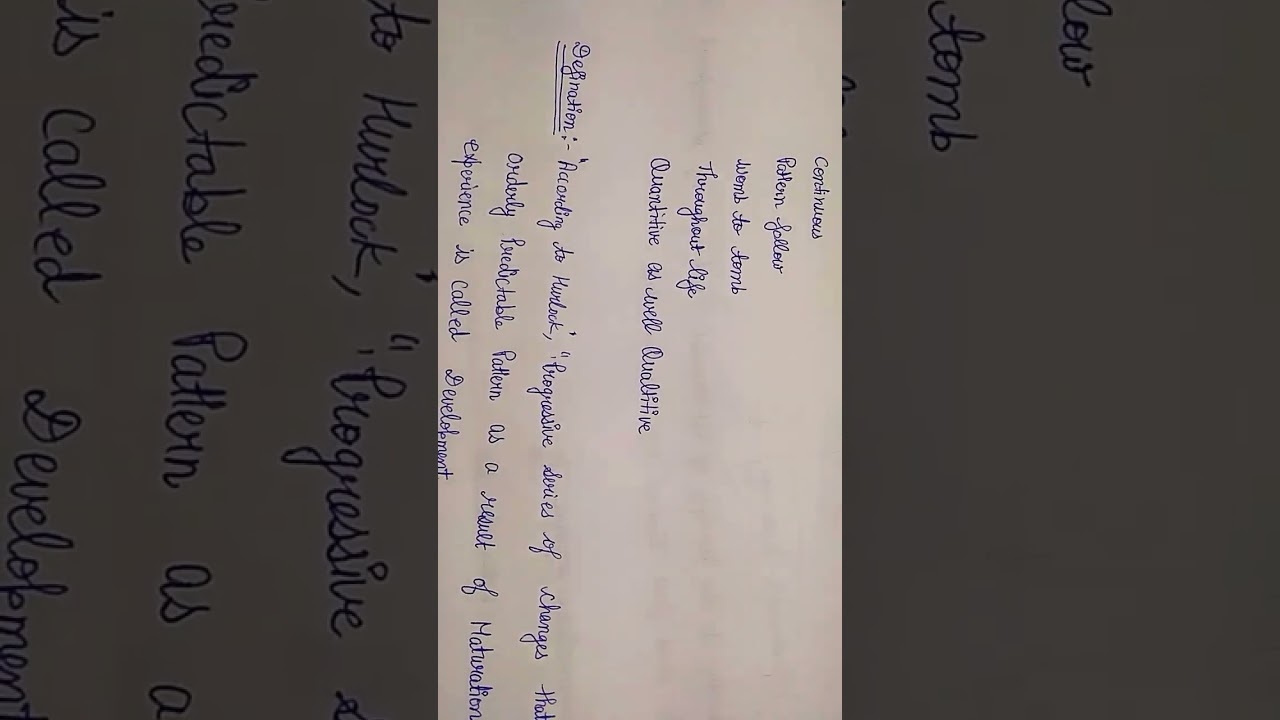 Continuous
Pattern follow
Womb to tomb
Throughout life
Quantitive as well Qualtitive
Defination:- "According to Hurlock", "Progressive series of changes that
Orderly Predictable Pattern as a result of Maturation
experience is called Development